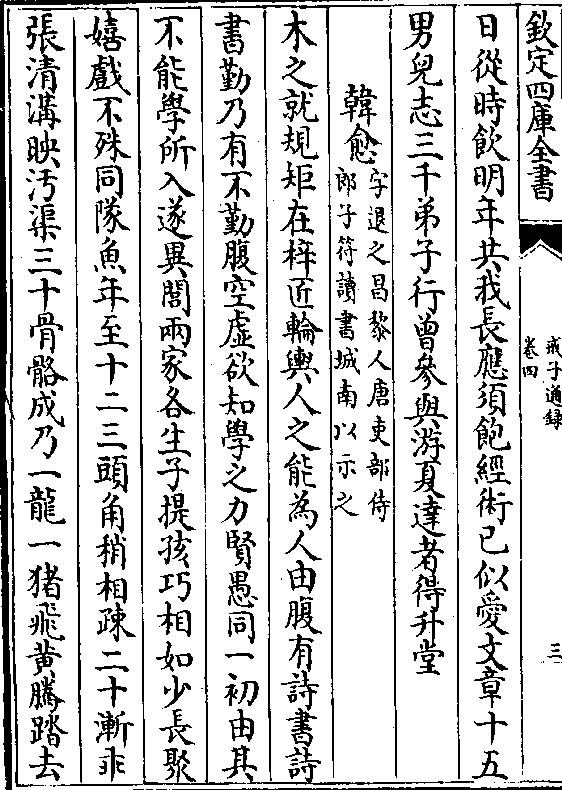 欽定四庫全書
戒子通録
卷四
三
日從時飲明年共我長應須飽經術已似愛文章十五
男兒志三千弟子行曽參與游夏達者得升堂
韓愈字退之昌黎人唐吏部侍
郎子符讀書城南以示之
木之就規矩在梓匠輪輿人之能為人由腹有詩書詩
書勤乃有不勤腹空虚欲知學之力賢愚同一初由其
不能學所入遂異閭兩家各生子提孩巧相如少長聚
嬉戲不殊同隊魚年至十二三頭角稍相疎二十漸乖
張清溝映汚渠三十骨骼成乃一龍一猪飛黄騰踏去